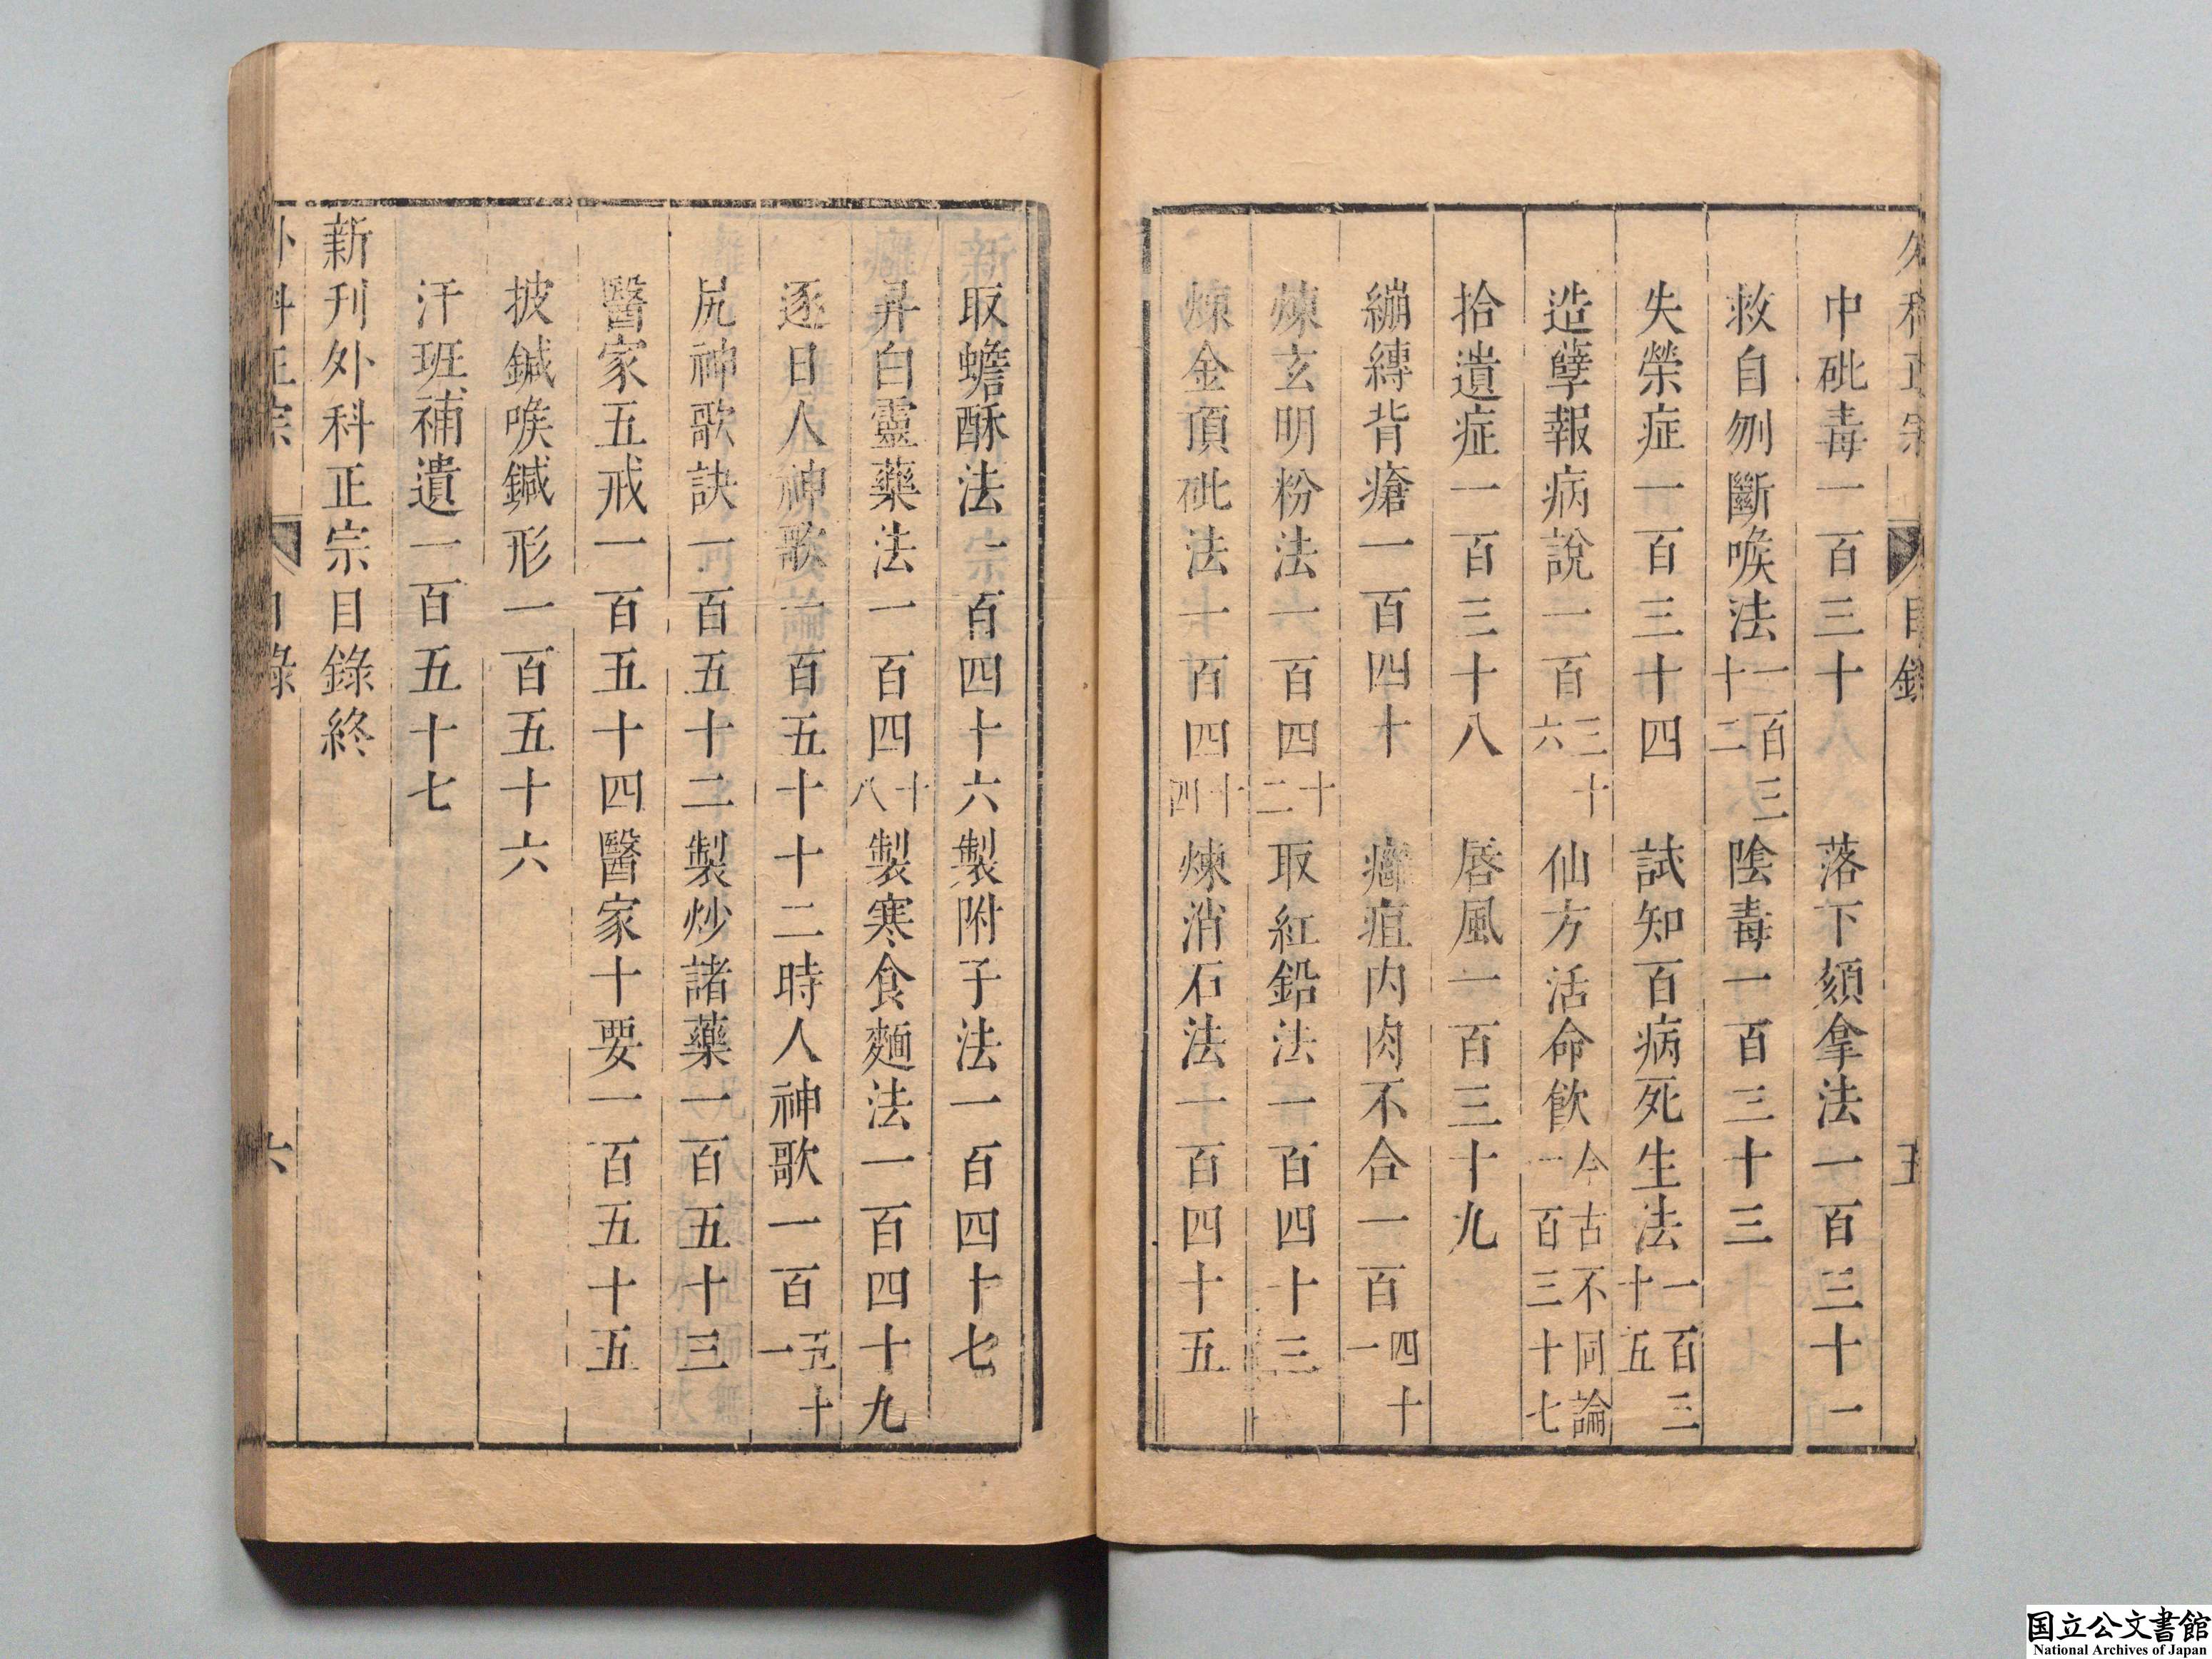 中砒毒一百三十　落下頦拿法一百三十一
救自刎斷喉法一百三十二　陰毒一百三十三
失榮症一百三十四　試知百病死生法一百三十五
造孽報病說一百三十六　仙方活命飲今古不同論一百三十七
拾遺症一百三十八　唇風一百三十九
繃縛背瘡一百四十　癰疽內肉不合一百四十一
煉玄明粉法一百四十二　取紅鉛法一百四十三
煉金頂砒法一百四十四　煉消石法一百四十五
取蟾酥法一百四十六　製附子法一百四十七
昇白靈藥法一百四十八　製寒食麵法一百四十九
逐日人神歌一百五十　十二時人神歌一百五十一
尻神歌訣一百五十二　製炒諸藥一百五十三
醫家五戒一百五十四　醫家十要一百五十五
披鍼喉鍼形一百五十六
汗班補遺一百五十七
新刊外科正宗目錄終
外科正宗　目錄　六
国立公文書館
National Archives of Japan